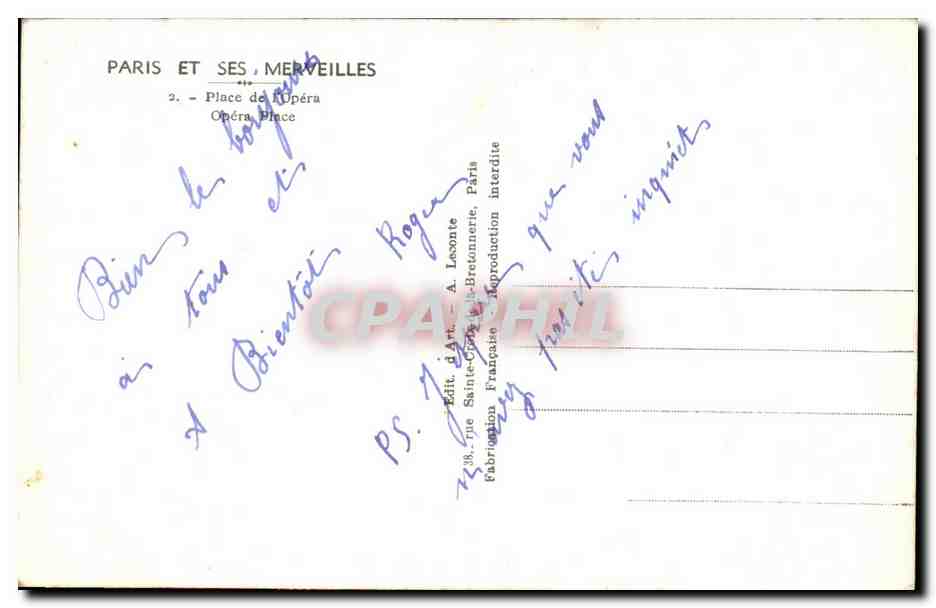 PARIS ET SES MERVEILLES
2. - Place de l'Opéra
Opéra Place
Bien le bonjour
à tous et
A Bientôt Roger
PS. J'espère que vous
n'avez pas été inquiets
Édit. d'Art. - A. Leconte
38, rue Sainte-Croix-de-la-Bretonnerie, Paris
Fabrication Française Reproduction interdite
CPAPHIL